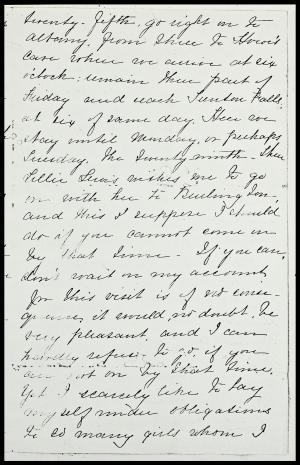 twenty-fifth, go right on to
Albany, from there to Howe's
Cave where we arrive at six
o'clock; remain there part of
Friday and reach Trenton Falls
at six of same day. Here we
stay until Monday, or perhaps
Tuesday, the twenty ninth. Then
Nellie wishes me to go
on with her to Burlington,
and this I suppose I should
do if you cannot come on
by that time. If you can,
don't wait on my account,
for this visit is of no conse-
quence, it would no doubt, be
very pleasant, and I can
hardly refuse to go, if you
are not on by that time.
Yet I scarcely like to lay
myself under obligations
to so many girls whom I